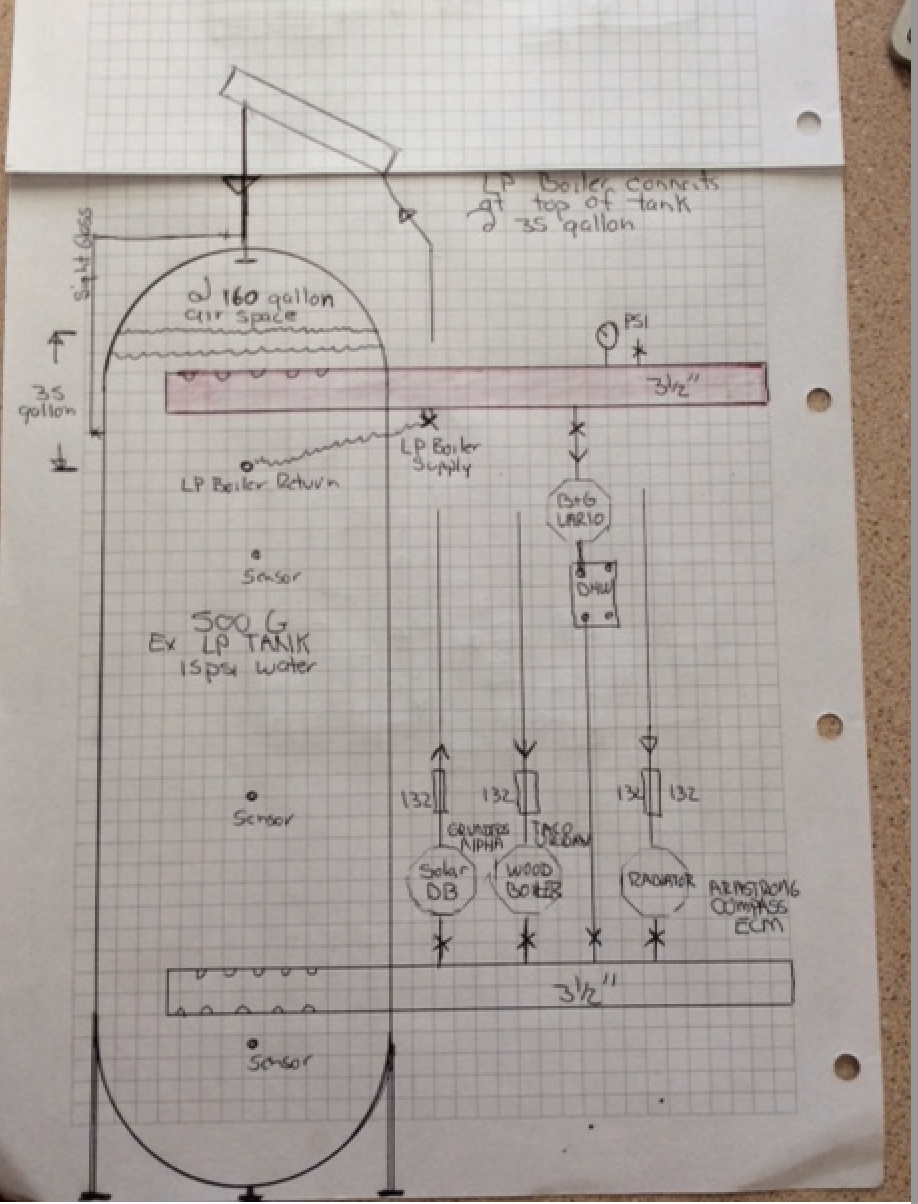 LP Boiler connects
at top of tank
35 gallon
Sight Glass
160 gallon
air space
PSI
35
gallon
3 1/2"
LP Boiler
Supply
LP Boiler Return
B+G
VARIO
Sensor
DHW
500 G
Ex LP TANK
15psi water
132
132
132
132
Sensor
GRUNDFOS
ALPHA
TACO
Solar
DB
WOOD
BOILER
RADIATOR
ARMSTRONG
COMPASS
ECM
3 1/2"
Sensor